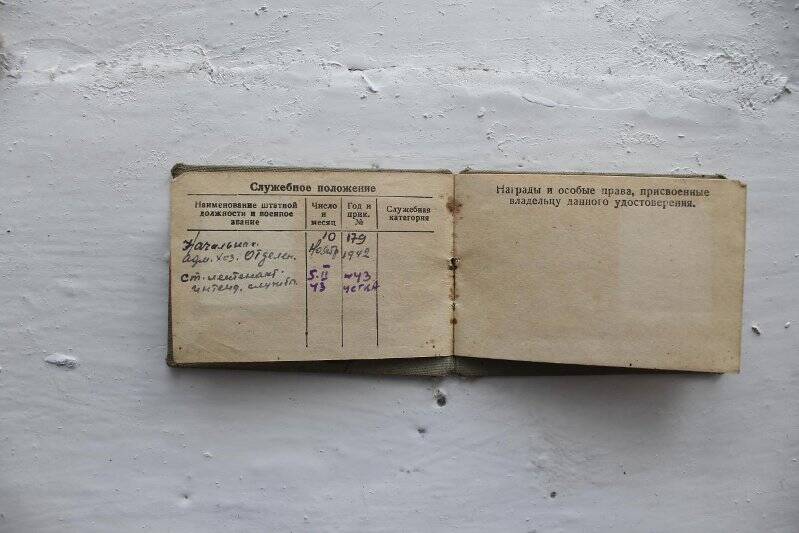 Служебное положение
Наименование штатной должности и военное звание
Число и месяц
Год и прик. №
Служебная категория
Начальник 10 179
Адм. хоз. Отделен. Ноябр 1942
Ст. лейтенант 5.II
интенд. службы 43
Награды и особые права, присвоенные
владельцу данного удостоверения.